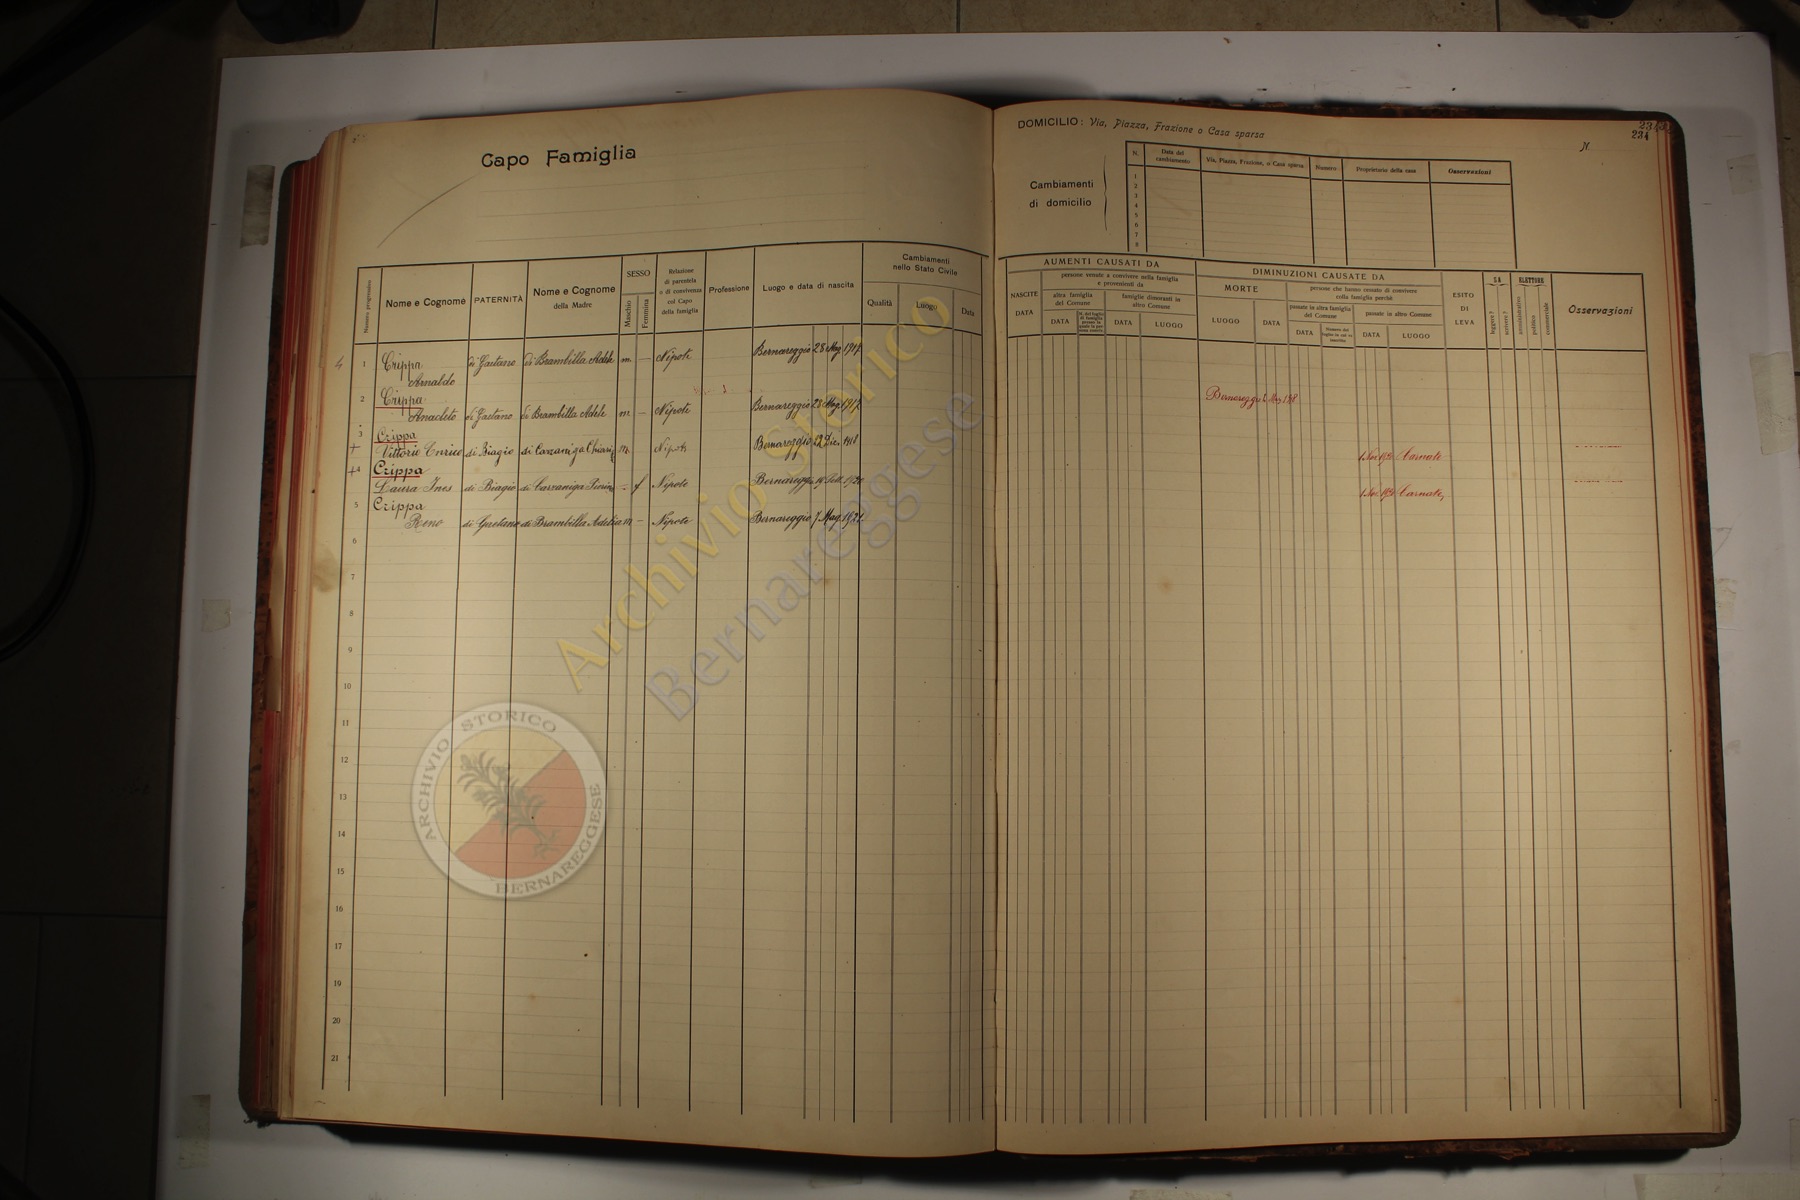 Capo Famiglia
DOMICILIO: Via, Piazza, Frazione o Casa sparsa
N.
234
Cambiamenti
di domicilio
N.
Data del
cambiamento
Via, Piazza, Frazione, o Casa sparsa
Numero
Proprietario della casa
Osservazioni
1
2
3
4
5
6
7
8
Numero progressivo
Nome e Cognome
PATERNITÀ
Nome e Cognome
della Madre
SESSO
Maschio
Femmina
Relazione
di parentela
o di convivenza
col Capo
della famiglia
Professione
Luogo e data di nascita
Cambiamenti
nello Stato Civile
Qualità
Luogo
Data
AUMENTI CAUSATI DA
NASCITE
DATA
persone venute a convivere nella famiglia
e provenienti da
altra famiglia
del Comune
DATA
famiglie dimoranti in
altro Comune
DATA
LUOGO
DIMINUZIONI CAUSATE DA
MORTE
LUOGO
DATA
persone che hanno cessato di convivere
colla famiglia perchè
passate in altra famiglia
del Comune
DATA
passate in altro Comune
DATA
LUOGO
ESITO
DI
LEVA
SA
leggere?
scrivere?
ELETTORE
amministrativo
politico
commerciale
Osservazioni
4
1 Crippa
Arnaldo di Gaetano di Brambilla Adele m — Nipote Bernareggio 28 Mag. 1917
2 Crippa
Anacleto di Gaetano di Brambilla Adele m — Nipote Bernareggio 28 Mag. 1917 Bernareggio
3 Crippa
+ Vittorio Enrico di Biagio di Carzaniga m. Nipote Bernareggio Dic. 1918 Carnate
+ 4 Crippa
Laura Ines di Biagio di Carzaniga — f Nipote Bernareggio Carnate
5 Crippa
Reno di Gaetano di Brambilla m — Nipote Bernareggio 7 Mag. 1921
6
7
8
9
10
11
12
13
14
15
16
17
19
20
21
Archivio Storico
Bernareggese
ARCHIVIO STORICO
BERNAREGGESE